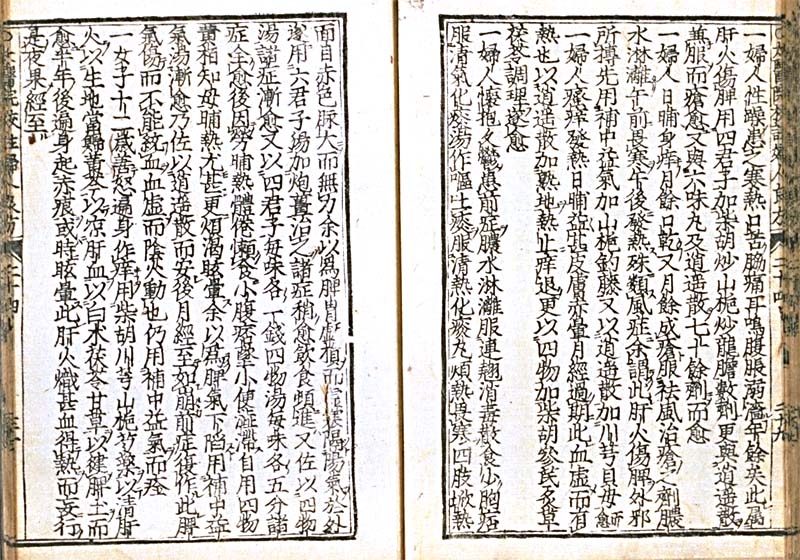 一婦人性躁患之寒熱口苦脇痛耳鳴腹脹溺澁年餘矣此屬
肝火傷脾用四君子加柴胡炒山梔炒龍膽數劑更與逍遙散
兼服而瘡愈又與六味丸及逍遙散七十餘劑而愈
一婦人日晡身痒月餘口乾又月餘成瘡服祛風治瘡之劑膿
水淋漓午前畏寒午後發熱殊類風症余謂此肝火傷脾外邪
所搏先用補中益氣加山梔釣藤又以逍遙散加川芎貝母而愈
一婦人瘙痒發熱日晡益甚皮膚赤暈月經過期此血虛而有
熱也以逍遙散加熟地熱止痒退更以四物加柴胡參芪炙草
茯苓調理遂愈
一婦人懷抱久鬱患前症膿水淋漓服連翹消毒散食少胸痞
服清氣化痰湯作嘔吐痰服清熱化痰丸煩熱畏寒四肢熱
面目赤色脉大而無力余以爲脾胃虛損而虛寒隔陽氣於外
遂用六君子湯加炮薑治之諸症稍愈飲食頓進又佐以四物
湯諸症漸愈又以四君子每味各一錢四物湯每味各五分諸
症全愈後因勞晡熱體倦懶食小腹痞堅小便澁滯自用四物
黃柏知母晡熱尤甚更煩渴眩暈余以爲脾氣下陷用補中益
氣湯漸愈乃佐以逍遙散而安後月經至如崩前症復作此脾
氣傷而不能統血血虛而陰火動也仍用補中益氣而痊
一女子十二歲善怒遍身作痒用柴胡川芎山梔芍藥以清肝
火以生地當歸黃芩以涼肝血以白朮茯苓甘草以健脾土而
愈半年後遍身起赤痕或時眩暈此肝火熾甚血得熱而妄行
是夜果經至